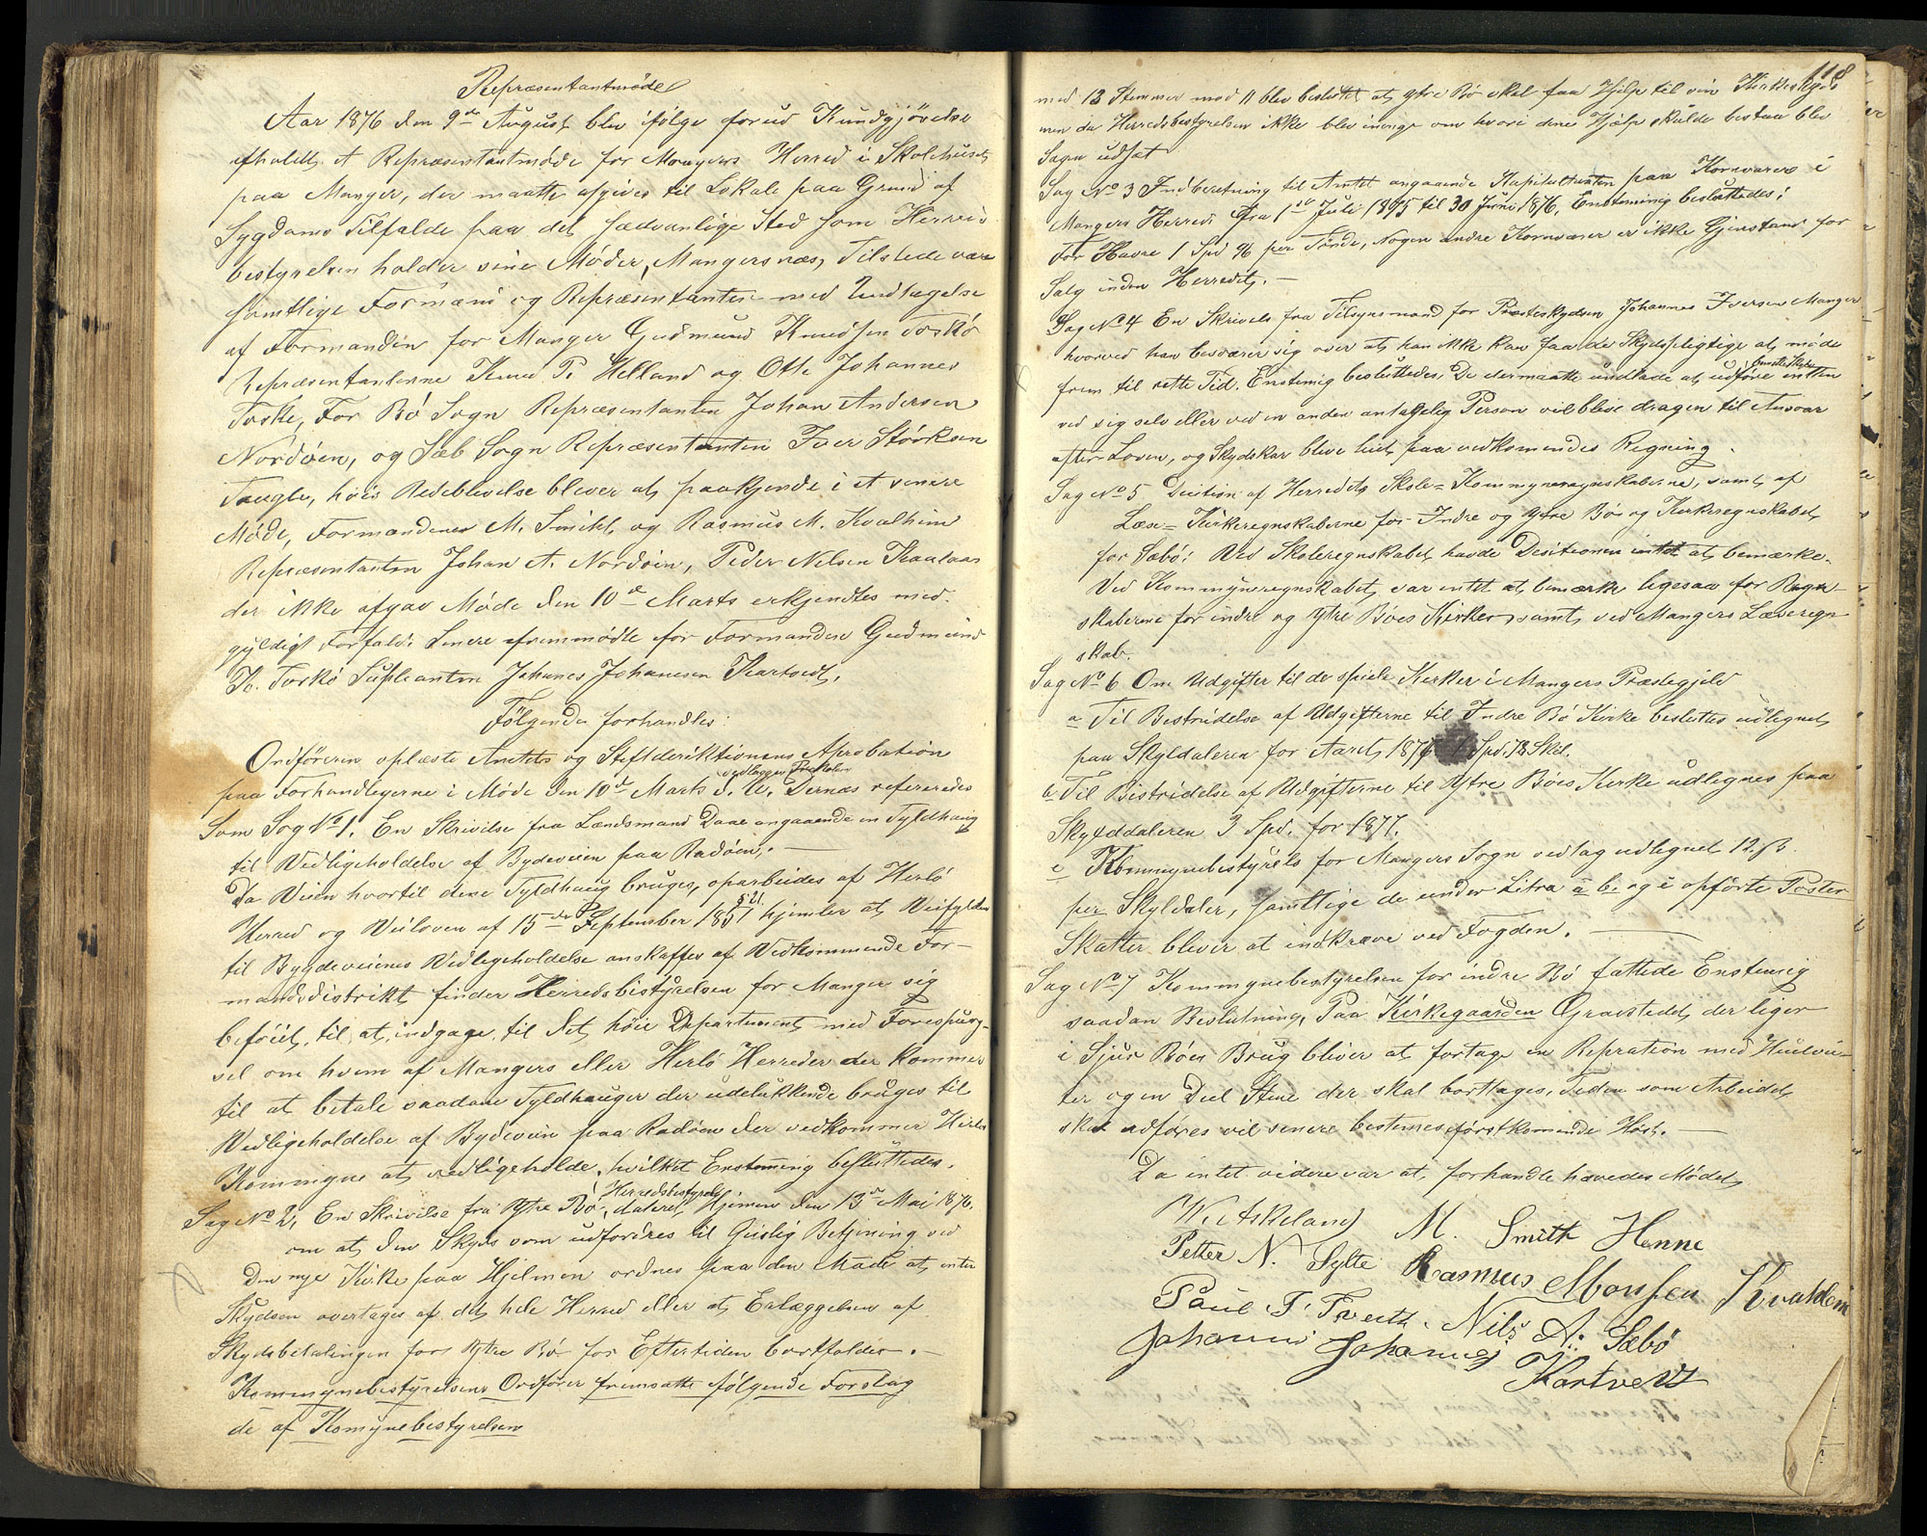 Repræsentantmøde
Aar 1876 den 9de August blev ifølge forud Kundgjørelse
afholdt et Repræsentantmøde for Mangers Herred i Skolehuset
paa Manger, der maatte afgives til Lokale paa Grund af
Sygdoms Tilfælde paa det sædvanlige Sted som Herreds
bestyrelsen holder sine Møder, Mangersnæs, Tilstede vare
samtlige Formænd og Repræsentanter med Undtagelse
af Formanden for Manger Gudmund Knudsen Toskø
Repræsentanterne Knud P. Helland og Otte Johannes
Toske, For Bø Sogn Repræsentanten Johan Andersen
Nordøen, og Sæb Sogn Repræsentanten Iver Størksen
Taugle, hvis Udeblivelse bliver at paakjende i et senere
Møde, Formændene M. Smith og Rasmus M. Kvalheim
Repræsentanten Johan A. Nordøen, Peder Nelsen Kaalaas
der ikke afgav Møde den 10de Marts erkjendtes med
gyldigt Forfald. Senere fremmødte for Formanden Gudmund
K. Toskø Supleanten Johanes Johanesen Kartvedt.
Følgende forhandles:
Ordføreren oplæste Amtets og Stiftdirektionens Aprobation
paa Forhandlegerne i Møde den 10de Marts d. A. Dernæs refereredes
vedlagen Protokolen
Som Sag No 1. En Skrivelse fra Lændsmand Daae angaaende en Fyldhaug
til Vedligeholdelse af Bydeveien paa Radøen. —
Da Veien hvortil dene Fyldhaug bruges, oparbeides af Herlø
Herred og Veiloven af 15de September 1851 § 21. hjemler at Veifylden
til Bygdeveienes Vedligeholdelse anskaffes af Vedkommende For-
mandsdistrikt finder Herredsbestyrelsen for Manger sig
beføiet til at indgaae til det høie Departement med Forespørg-
sel om hvem af Mangers eller Herlø Herreder der kommer
til at betale saadane Fyldhauger der udelukkende bruges til
Vedligeholdelse af Bydevein paa Radøen der vedkommer Herlø
Kommyne at vedligeholde, hvilket Enstemig besluttedes.
Sag No 2, En Skrivelse fra Ytre Bø, Herredsbestyrelse dateret Hjemen den 13de Mai 1876.
om at den Skyds som udfordres til Geislig Betjening ved
Den nye Kirke paa Hjelmen ordnes paa den Maade at enten
Skydsen overtages af det hele Herred eller at Erlæggelsen af
Skydsbetalingen for Ytre Bø for Eftertiden bortfalder. —
Kommynebestyrelsens Ordfører fremsatte følgende Forslag
de af Komynebestyrelsen
118
med 13 Stemmer mod 11 blev besluttet at ytre Bø skal faa Hjelp til sin Kirkeskyds
men da Herredsbestyrelsen ikke blev inenge om hvori dene Hjælp skulde bestaa blev
Sagen udsat
Sag No 3 Indberetning til Amtet angaaende Kapitelstaxten paa Kornvarer i
Mangers Herred, fra 1ste Juli 1875 til 30 Juni 1876, Enstemig besluttedes:
For Havre 1 Spd 96 per Tønde, Nogen andre Kornvarer er ikke Gjenstand for
Salg inden Herredet. —
Sag No 4 En Skrivels fra Tilsynsmand for Præsteskydsen Johannes Iversen Manger
hvorved han besværer sig over at han ikke kan faa de Skydspligtige at møde
frem til rette Tid. Enstemig besluttedes, De der maatte undlade at udføre enten
ved sig selv eller ved en anden antagelig Person vil blive dragen til Ansvar
efter Loven, og Skydskar blive leiet paa vedkomendes Regning.
Sag No 5 Desition af Herredets Skole = Kommyneregnskaberne, samt af
Læse = Kirkeregnskaberne for Indre og Ytre Bø og Kirkeregnskabet
for Sæbø: Ved Skoleregnskabet havde Desitionen intet at bemærke.
Ved Kommyneregnskabet var intet at bemærke ligesaa for Regn-
skaberne for indre og ytre Bøes Kirker, samt ved Mangers Læseregn
skab.
Sag No 6 Om Udgifter til de spicle Kirker i Mangers Præstegjeld
a Til Bestridelse af Udgifterne til Indre Bø Kirke besluttes udlignet
paa Skyldaleren for Aaret 1876 1 Spd. 73 Skil.
b Til Bistridelse af Udgifterne til Ytre Bøes Kirke udlignes paa
Skylddaleren 3 Spd. for 1877.
c Kommynebestyrels for Mangers Sogn vedtog udlignet 12 ß.
per Skyldaler, samtlige de under Litra a b. og c opførte Poster
Skatter bliver at indkræve ved Fogden. —
Sag No 7 Kommynebestyrelsen for indre Bø fattede Enstemig
saadan Beslutning, Paa Kirkegaarden Gravstedet der liger
i Sjur Bøes Brug bliver at fortage en Repration med
ter og en Deel Stene der skal borttages, Tiden som Arbeidet
skal udføres vil senere bestemes førstkomende Høst. —
Da intet videre var at forhandle hævedes Mødet,
W. Askeland M. Smith Henne
Petter N. Sylte Rasmus Monsen Kvalheim
Paul T. Tveith. Nils A. Sæbø
Johannes Johannes Kartvedt